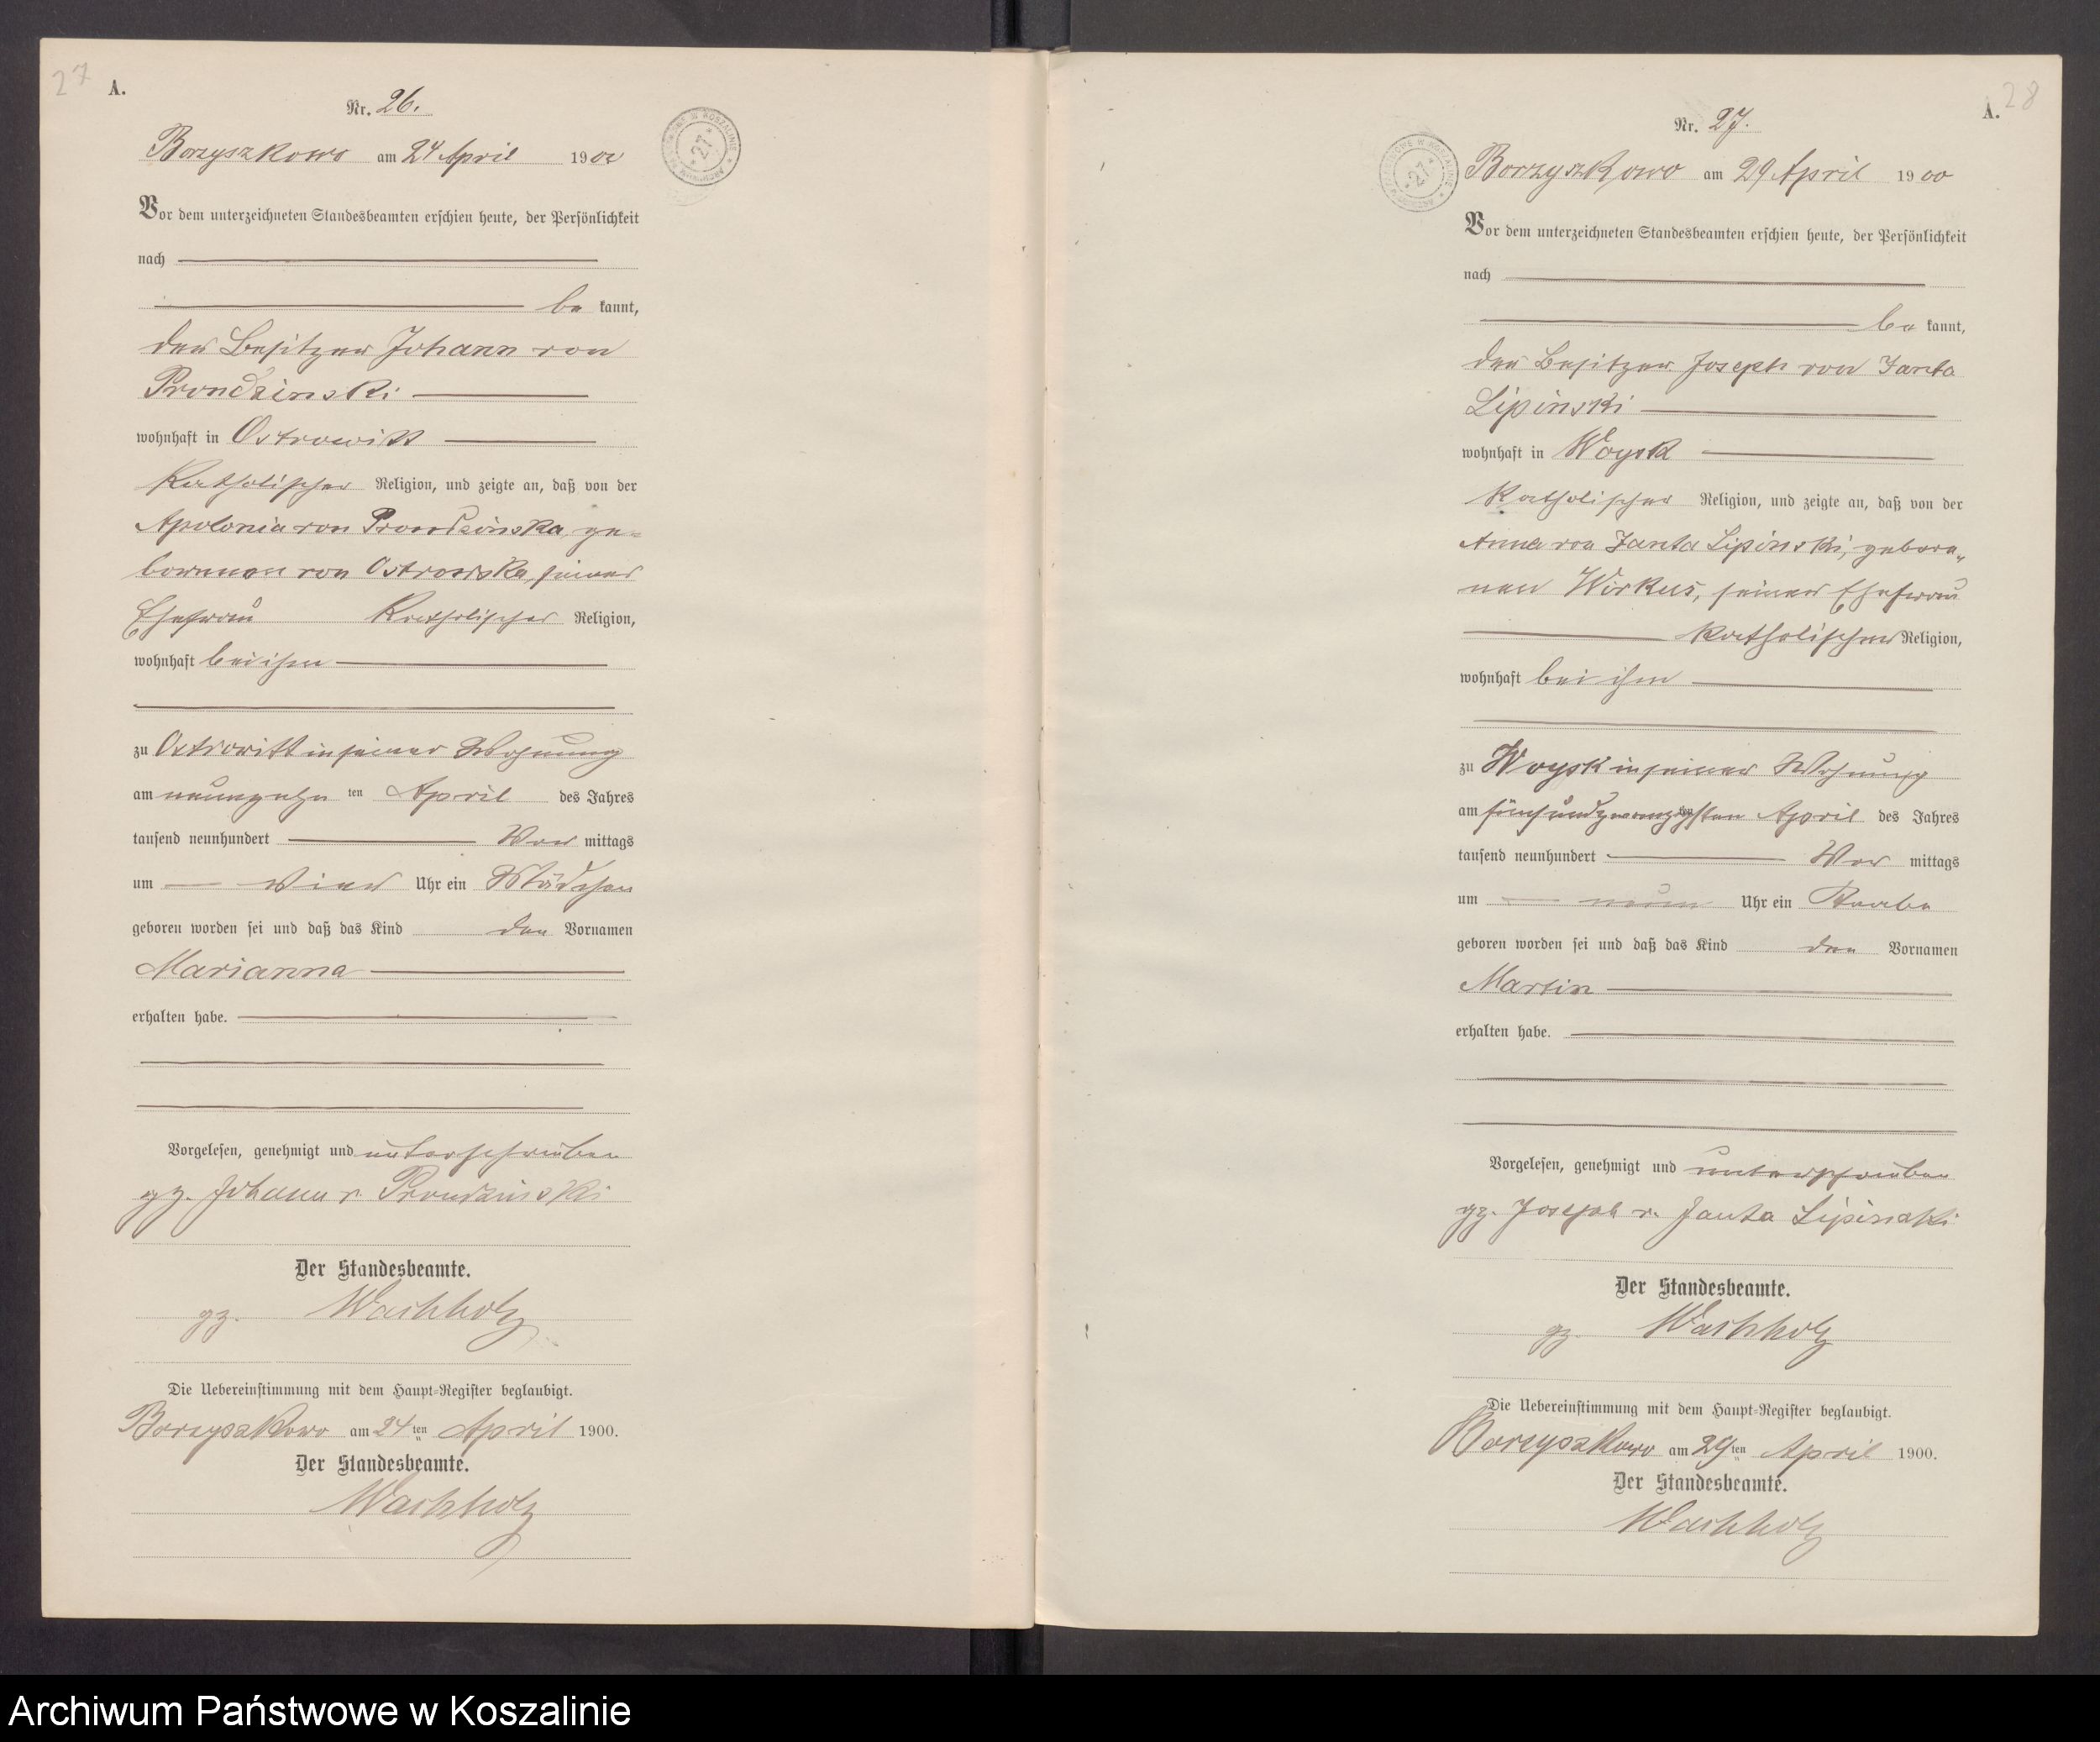 27
A.
Nr. 26.
Borzyszkowo am 24 April 1900
Vor dem unterzeichneten Standesbeamten erschien heute, der Persönlichkeit
nach
be kannt,
der Besitzer Johann von
Prondzinski
wohnhaft in Ostrowitt
Katholischer Religion, und zeigte an, daß von der
Apolonia von Prondzinska, ge=
borenen von Ostrowska, seiner
Ehefrau Katholischer Religion,
wohnhaft bei ihm
zu Ostrowitt in seiner Wohnung
am neunzehn ten April des Jahres
tausend neunhundert Vor mittags
um vier Uhr ein Mädchen
geboren worden sei und daß das Kind den Vornamen
Marianna
erhalten habe.
Vorgelesen, genehmigt und unterschrieben
gz. Johann v. Prondzinski
Der Standesbeamte.
gz. Wachholz
Die Uebereinstimmung mit dem Haupt-Register beglaubigt.
Borzyszkowo am 24 ten April 1900.
Der Standesbeamte.
Wachholz
28
A.
Nr. 27.
Borzyszkowo am 29 April 1900
Vor dem unterzeichneten Standesbeamten erschien heute, der Persönlichkeit
nach
be kannt,
der Besitzer Joseph von Janta
Lipinski
wohnhaft in Woysk
Katholischer Religion, und zeigte an, daß von der
Anna von Janta Lipinski, gebore„
nen Wirkus, seiner Ehefrau
Katholischer Religion,
wohnhaft bei ihm
zu Woysk in seiner Wohnung
am fünfundzwanzigsten April des Jahres
tausend neunhundert Vor mittags
um neun Uhr ein Knabe
geboren worden sei und daß das Kind den Vornamen
Martin
erhalten habe.
Vorgelesen, genehmigt und unterschrieben
gz. Joseph v. Janta Lipinski
Der Standesbeamte.
gz. Wachholz
Die Uebereinstimmung mit dem Haupt-Register beglaubigt.
Borzyszkowo am 29 ten April 1900.
Der Standesbeamte.
Wachholz
Archiwum Państwowe w Koszalinie